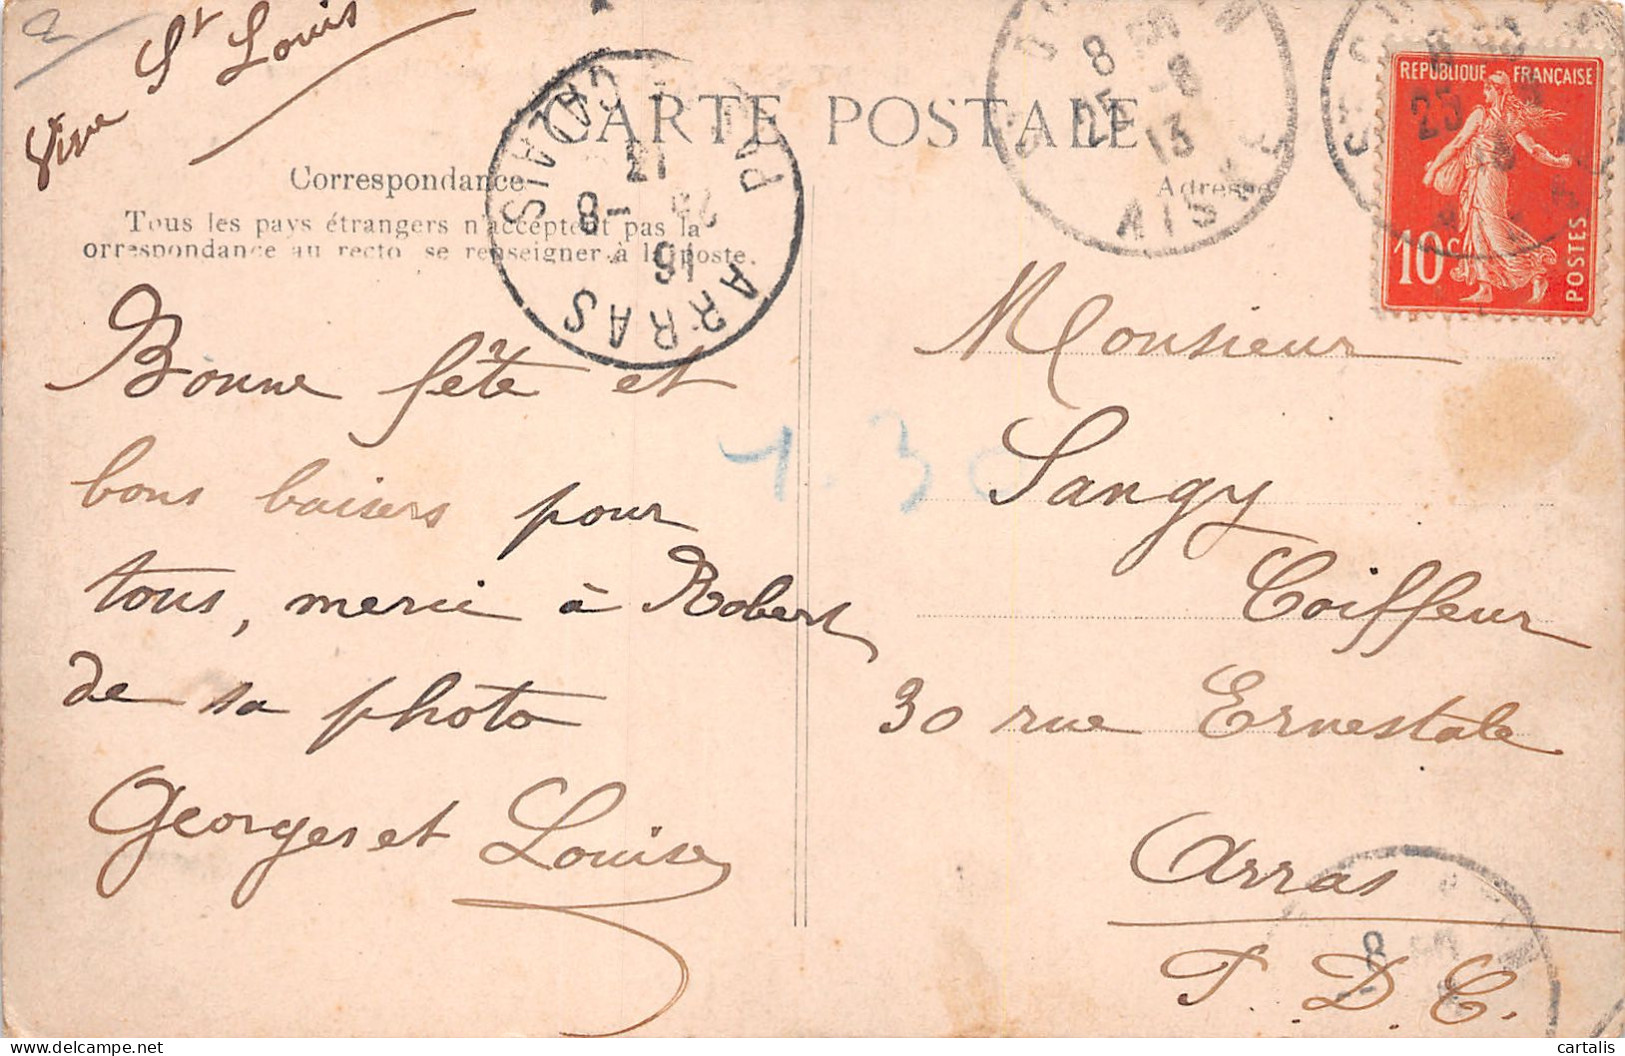 Vive St Louis
CARTE POSTALE
Correspondance
Tous les pays étrangers n'acceptent pas la
orrespondance au recto, se renseigner à la poste.
Adresse
RÉPUBLIQUE FRANÇAISE
10 c
POSTES
ARRAS
PAS DE CALAIS
16
25 -8
13
8 50
25 -8
13
AISNE
Bonne fête et
bons baisers pour
tous, merci à Robert
de sa photo
Georges et Louise
1.30
Monsieur
Sangy
Coiffeur
30 rue Ernestale
Arras
P. D. C.
cartalis